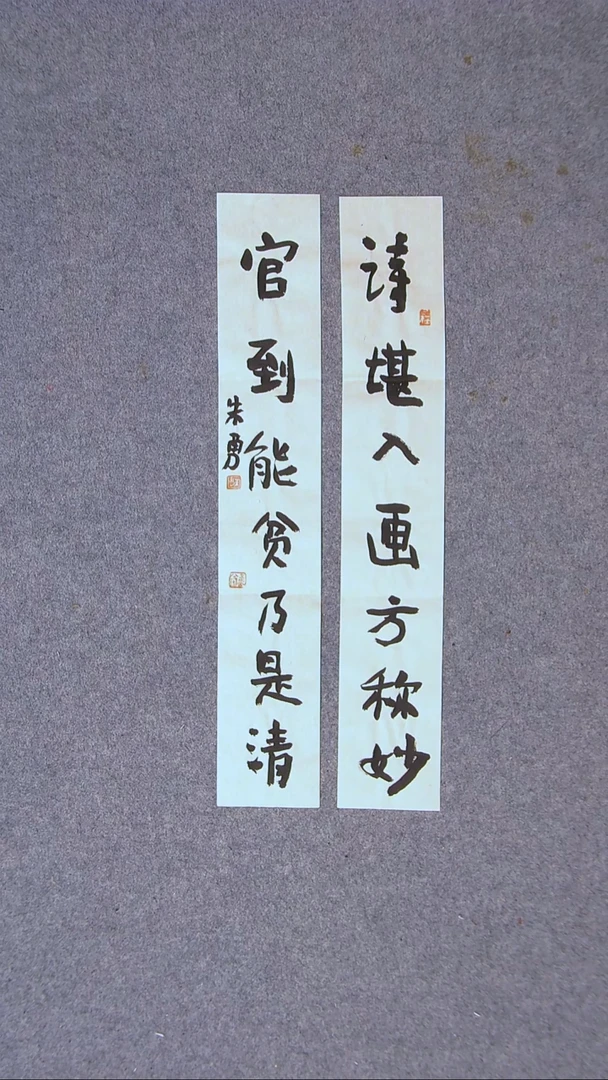 诗堪入画方称妙
官到能贫乃是清
朱勇